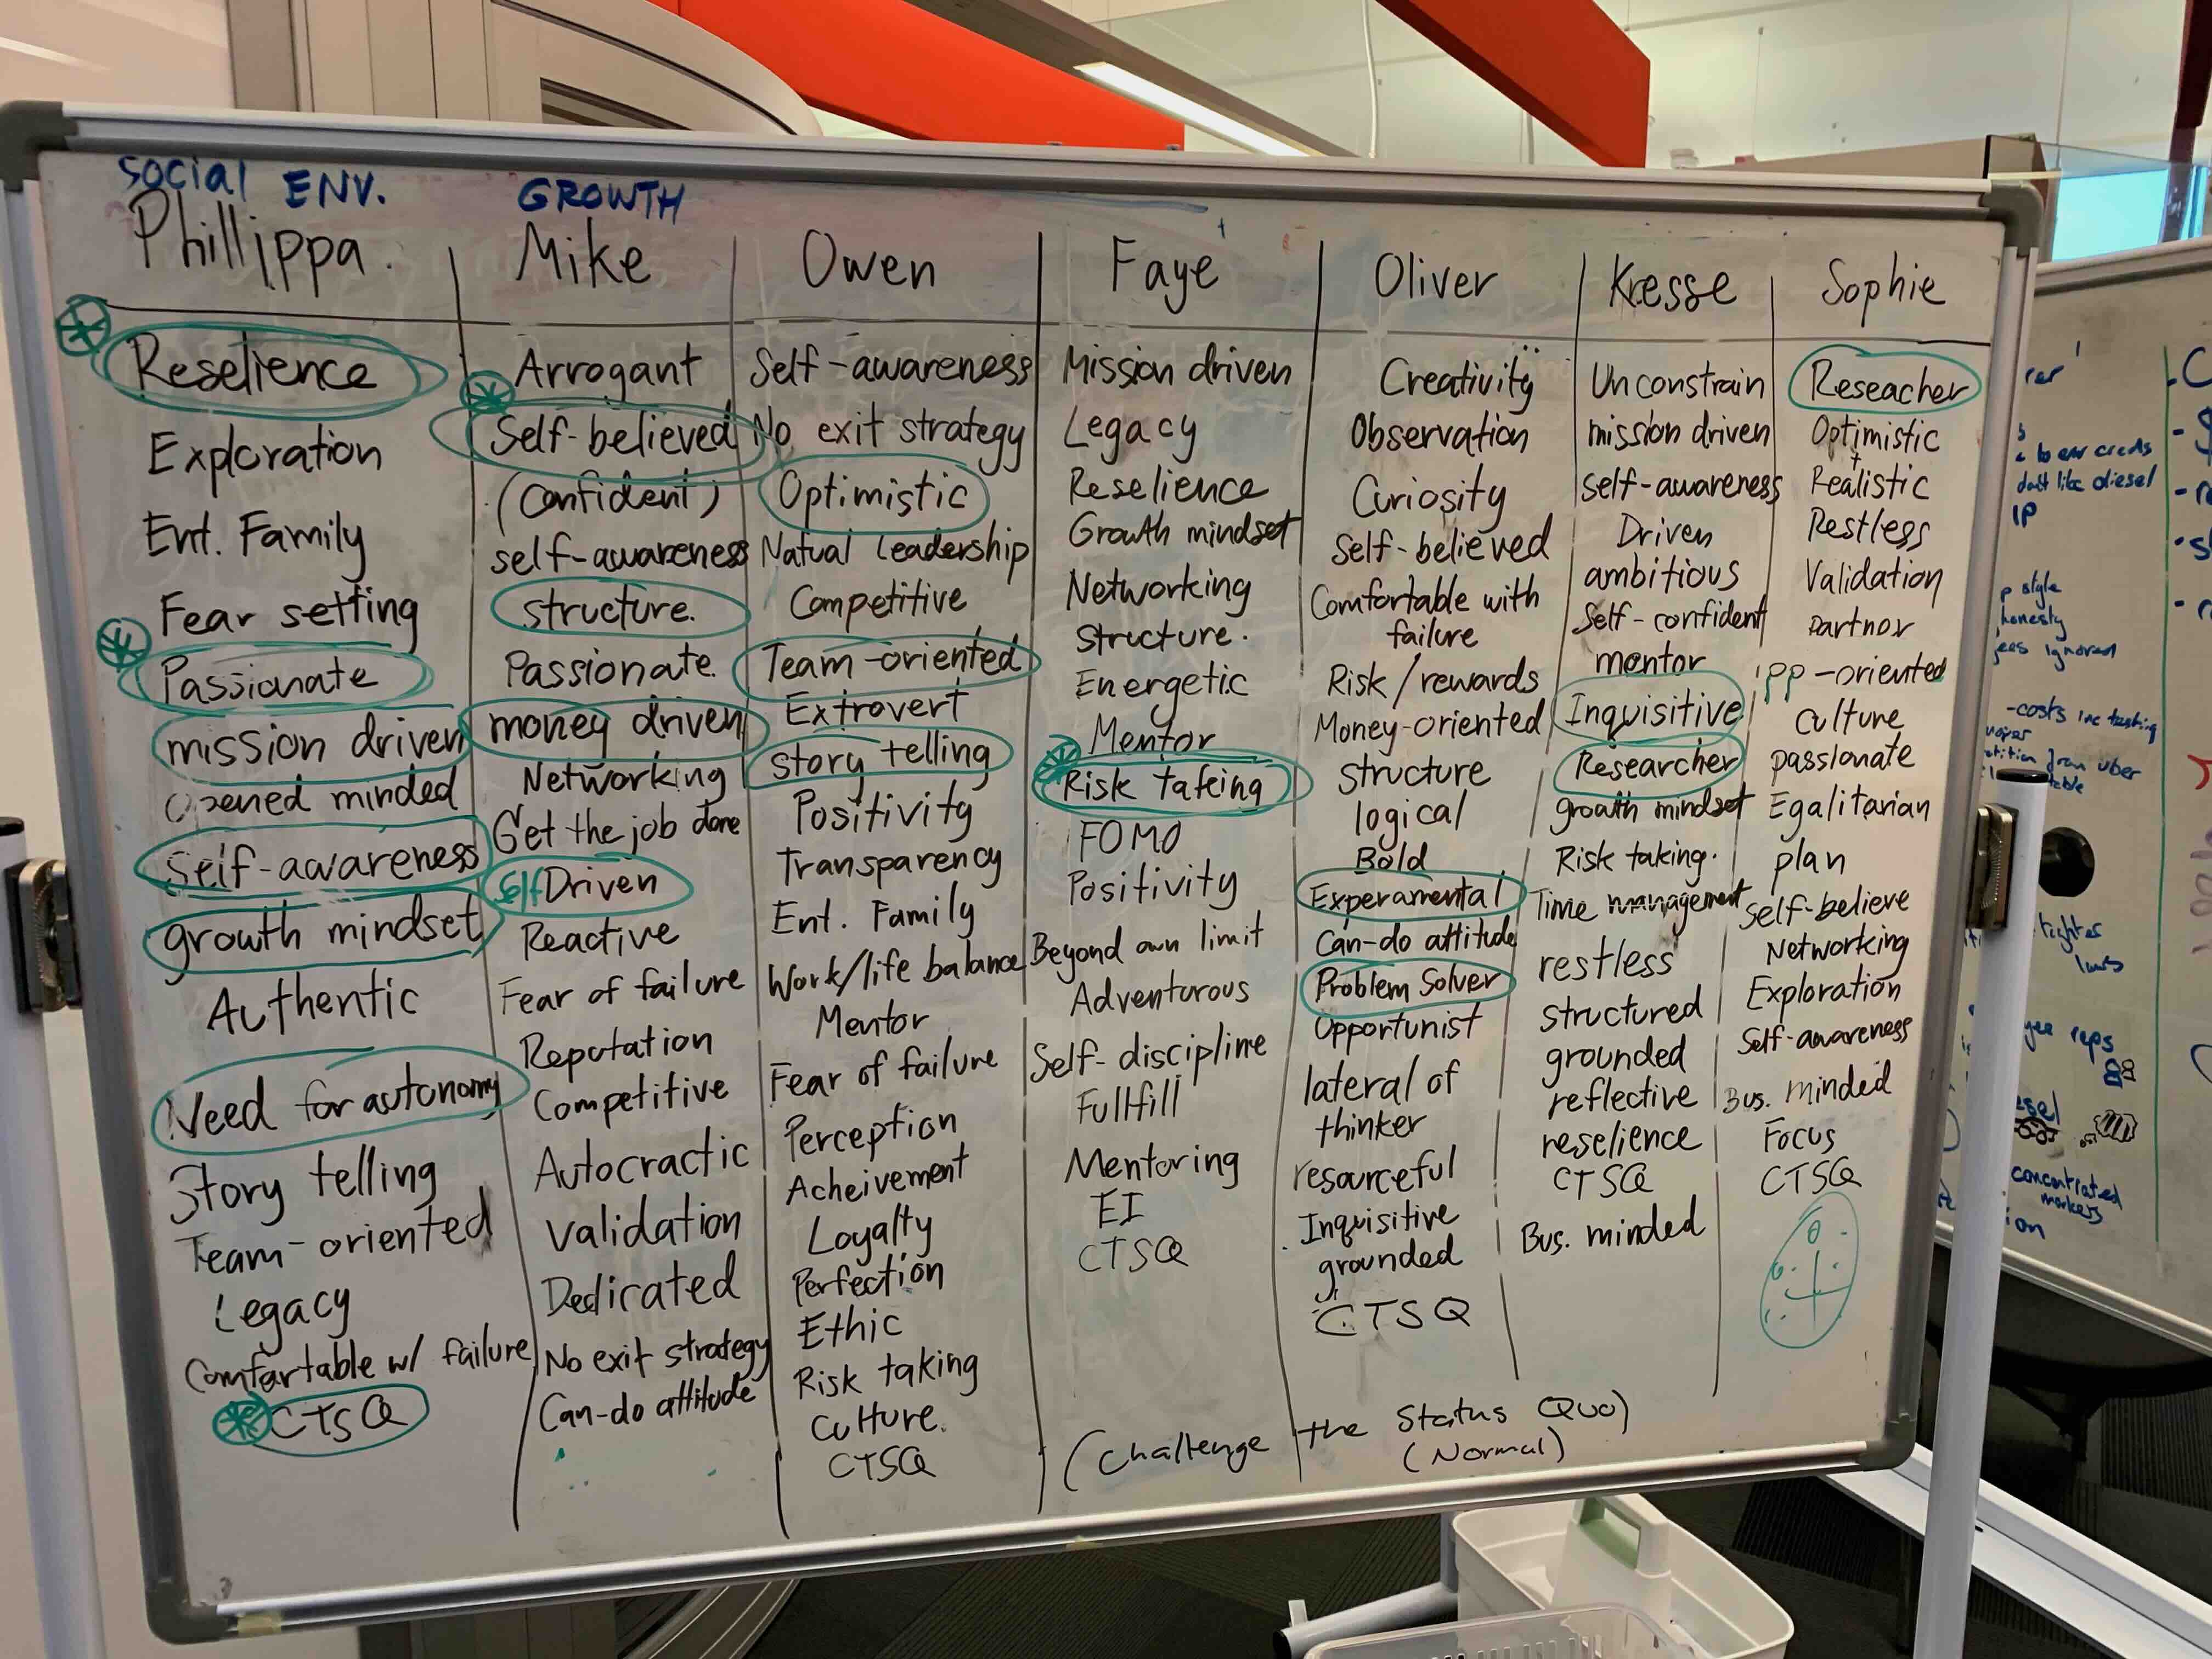 SOCIAL ENV.
Phillippa.
Reselience
Exploration
Ent. Family
Fear setting
Passionate
mission driven
Opened minded
Self-awareness
growth mindset
Authentic
Need for autonomy
Story telling
Team-oriented
Legacy
Comfortable w/ failure
CTSQ
GROWTH
Mike
Arrogant
Self-believed
(Confident)
self-awareness
structure.
Passionate.
money driven
Networking
Get the job done
Self Driven
Reactive
Fear of failure
Reputation
Competitive
Autocractic
Validation
Dedicated
No exit strategy
Can-do attitude
Owen
Self-awareness
No exit strategy
Optimistic
Natual Leadership
Competitive
Team-oriented
Extrovert
story telling
Positivity
Transparency
Ent. Family
Work/life balance
Mentor
Fear of failure
Perception
Acheivement
Loyalty
Perfection
Ethic
Risk taking
Culture.
CTSQ
Faye
Mission driven
Legacy
Reselience
Growth mindset
Networking
Structure.
Energetic
Mentor
Risk taking
FOMO
Positivity
Beyond own limit
Adventurous
Self-discipline
Fullfill
Mentoring
EI
CTSQ
Oliver
Creativity
Observation
Curiosity
Self-believed
Comfortable with
failure
Risk/rewards
Money-oriented
structure
logical
Bold
Experamental
Can-do attitude
Problem Solver
Opportunist
lateral of
thinker
resourceful
Inquisitive
grounded
CTSQ
Kresse
Unconstrain
mission driven
self-awareness
Driven
ambitious
Self-confident
mentor
Inquisitive
Researcher
growth mindset
Risk taking.
Time management
restless
structured
grounded
reflective
reselience
CTSQ
Bus. minded
Sophie
Reseacher
Optimistic
+
Realistic
Restless
Validation
partner
PP-oriented
Culture
passionate
Egalitarian
plan
Self-believe
Networking
Exploration
Self-awareness
Bus. minded
Focus
CTSQ
(Challenge the Status Quo)
(Normal)
like diesel
IP
style
honesty
ignored
-costs inc testing
uber
tighter
laws
reps
concentrated
markers